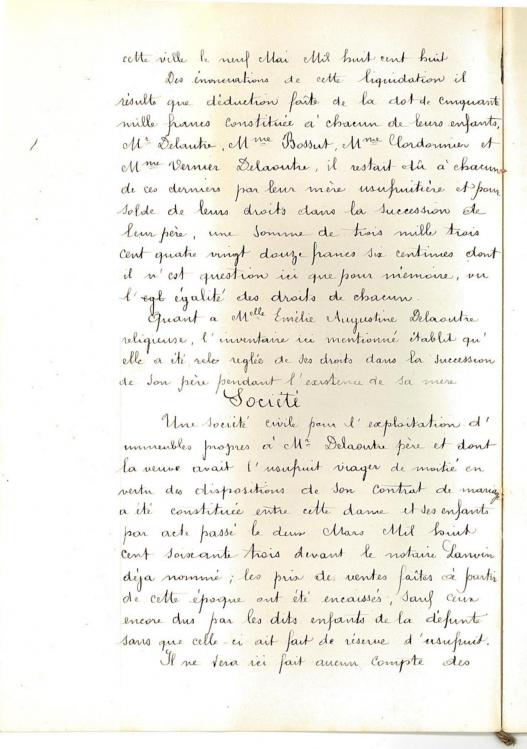 cette ville le neuf Mai Mil huit cent huit
Des énonciations de cette liquidation il
résulte que déduction faîte de la dot de cinquante
mille francs constituée à chacun de leurs enfants,
Mr Delaoutre, Mme Bossut, Mme Cordonnier et
Mme Vernier Delaoutre, il restait dû à chacun
de ces derniers par leur mère usufruitière et pour
solde de leurs droits dans la succession de
leur père, une somme de trois mille trois
cent quatre vingt douze francs six centimes dont
il n'est question ici que pour mémoire, vu
l'egl égalité des droits de chacun.
Quant a Melle Emélie Augustine Delaoutre
religieuse, l'inventaire ici mentionné établit qu'
elle a été rele reglée de ses droits dans la succession
de son père pendant l'existence de sa mère
Société
Une société civile pour l'exploitation d'
immeubles propres à Mr Delaoutre père et dont
la veuve avait l'usufruit viager de moitié en
vertu des dispositions de son contrat de mariage
a été constituée entre cette dame et ses enfants
par acte passé le deux Mars Mil huit
cent soixante trois devant le notaire Lanvin
déja nommé ; les prix de ventes faîtes à partir
de cette époque ont été encaissés, sauf ceux
encore dus par les dits enfants de la défunte
sans que celle-ci ait fait de réserve d'usufruit.
Il ne sera ici fait aucun compte des